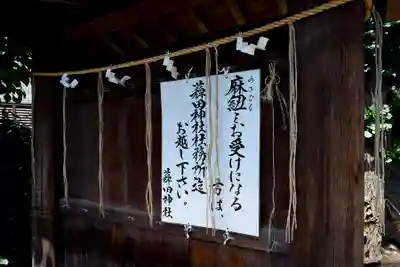 あさひも
麻紐をお受けになる
方は、
蕣田神社社務所迄
お越し下さい。
蕣田神社